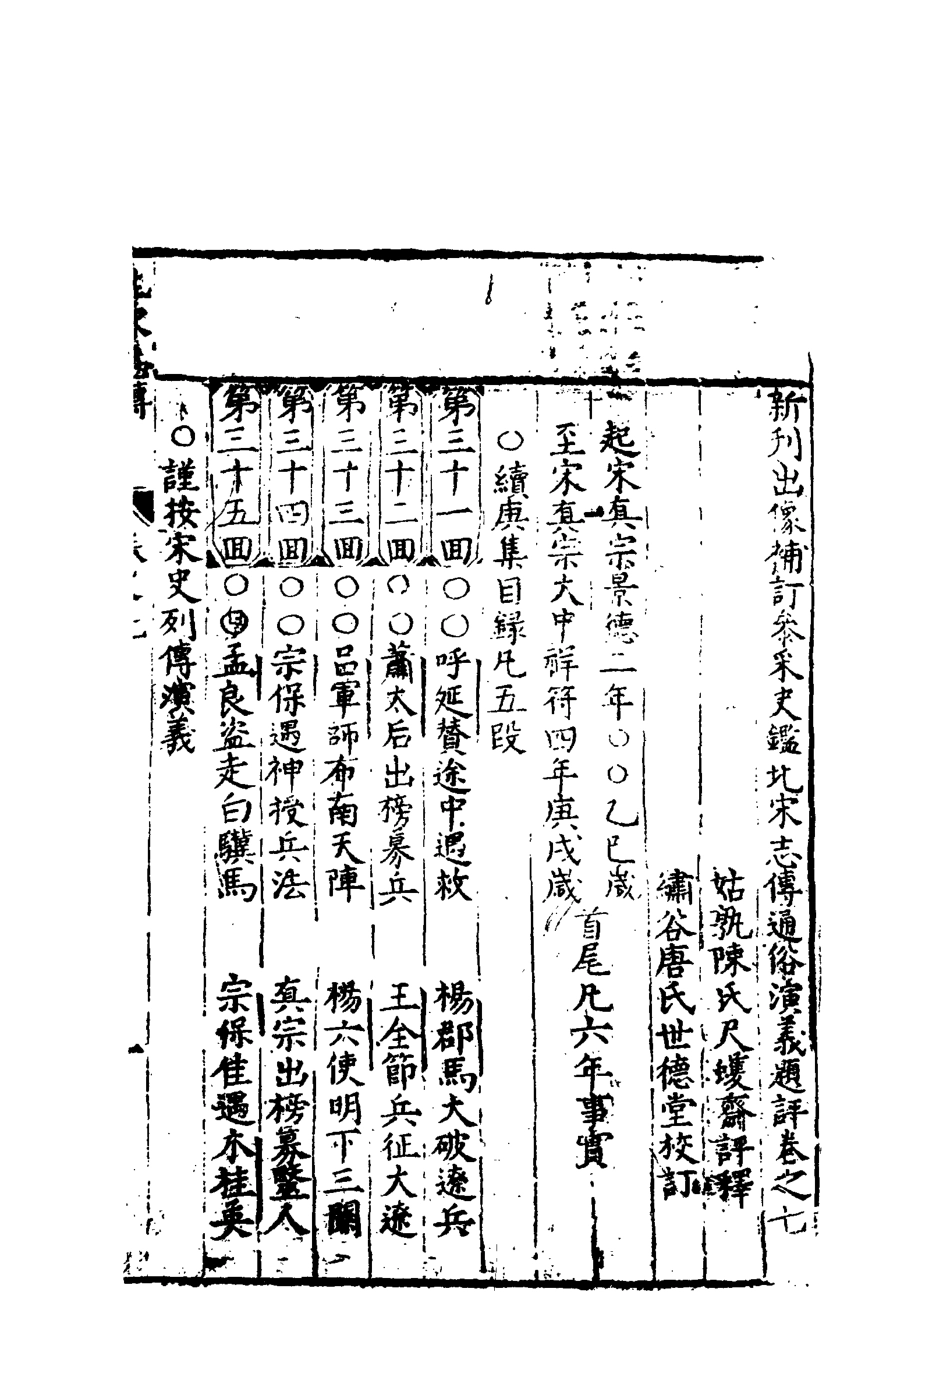 新刊出像補訂參采史鑑北宋志傳通俗演義題評卷之七
姑孰陳氏尺蠖齋評釋
繡谷唐氏世德堂校訂
起宋真宗景德二年○○乙巳歲
至宋真宗大中祥符四年庚戌歲
首尾凡六年事實
○續庚集目錄凡五段
第三十一回○○呼延贊途中遇救 楊郡馬大破遼兵
第三十二回○○蕭太后出榜募兵 王全節兵征大遼
第三十三回○○呂軍師布南天陣 楊六使明下三關
第三十四回○○宗保遇神授兵法 真宗出榜募醫人
第三十五回○○孟良盜走白驥馬 宗保佳遇木桂英
○謹按宋史列傳演義